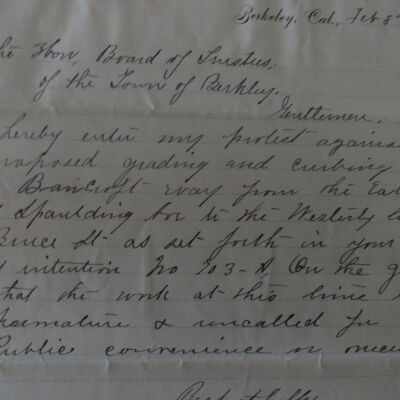 Berkeley, Cal., Feb 8
the Hon, Board of Trustus,
of the Town of Berkley.
Gentlemen.
hereby enter my protest agains
roposed grading and curbing
Bancroft way from the Eas
Spaulding ave to the Westerly li
Bruce St as set forth in your
intention No 703-A On the g
hat the work at this time
premature & uncalled for
Public convenience or neces
Respectfully